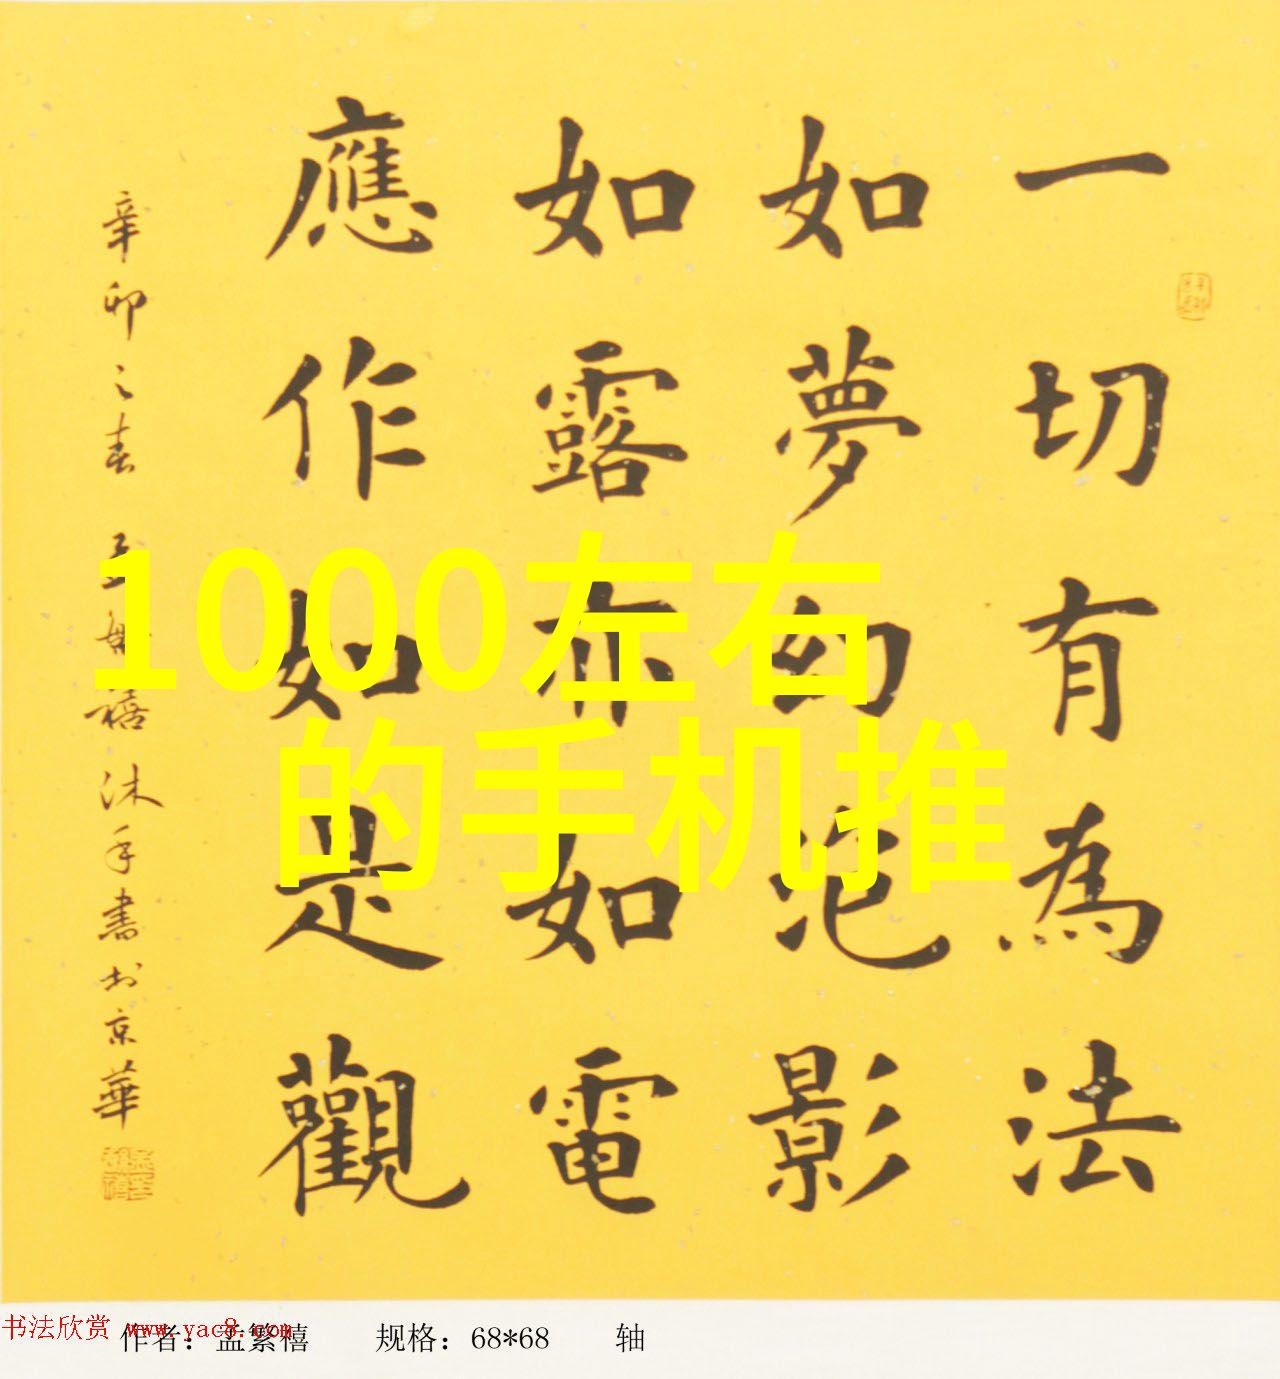 一切有為法
如夢幻泡影
如露亦如電
應作如是觀
辛卯之春 孟繁禧沐手書於京華
1000左右
的手机推
书法欣赏 www.yac8.com
作者：孟繁禧 规格：68*68 轴